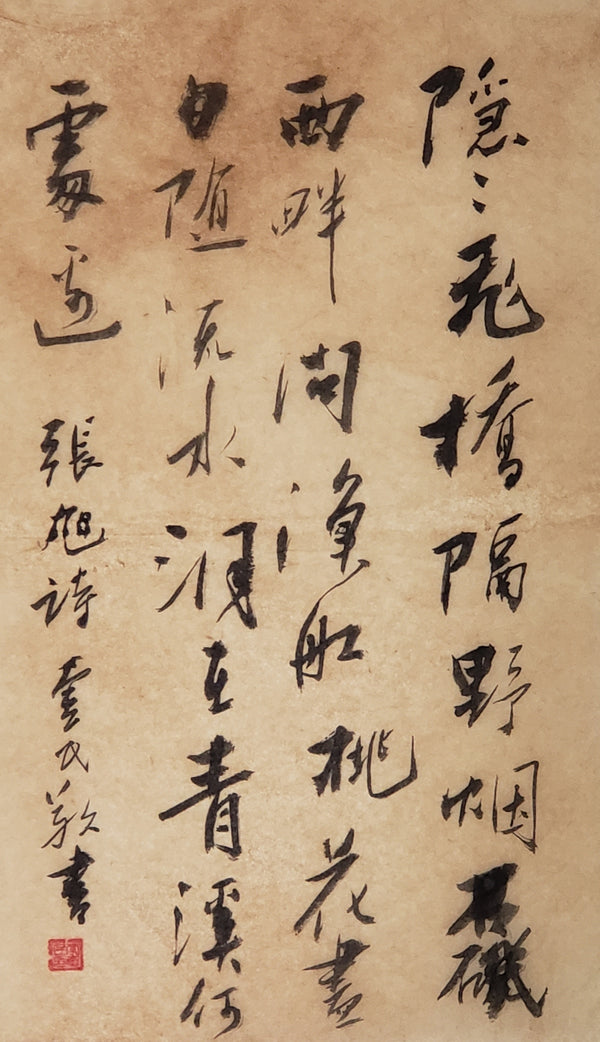 隱〻飛橋隔野烟石磯
西畔問漁舡桃花盡
日随流水洞在青溪何
處邊 張旭詩 敬書